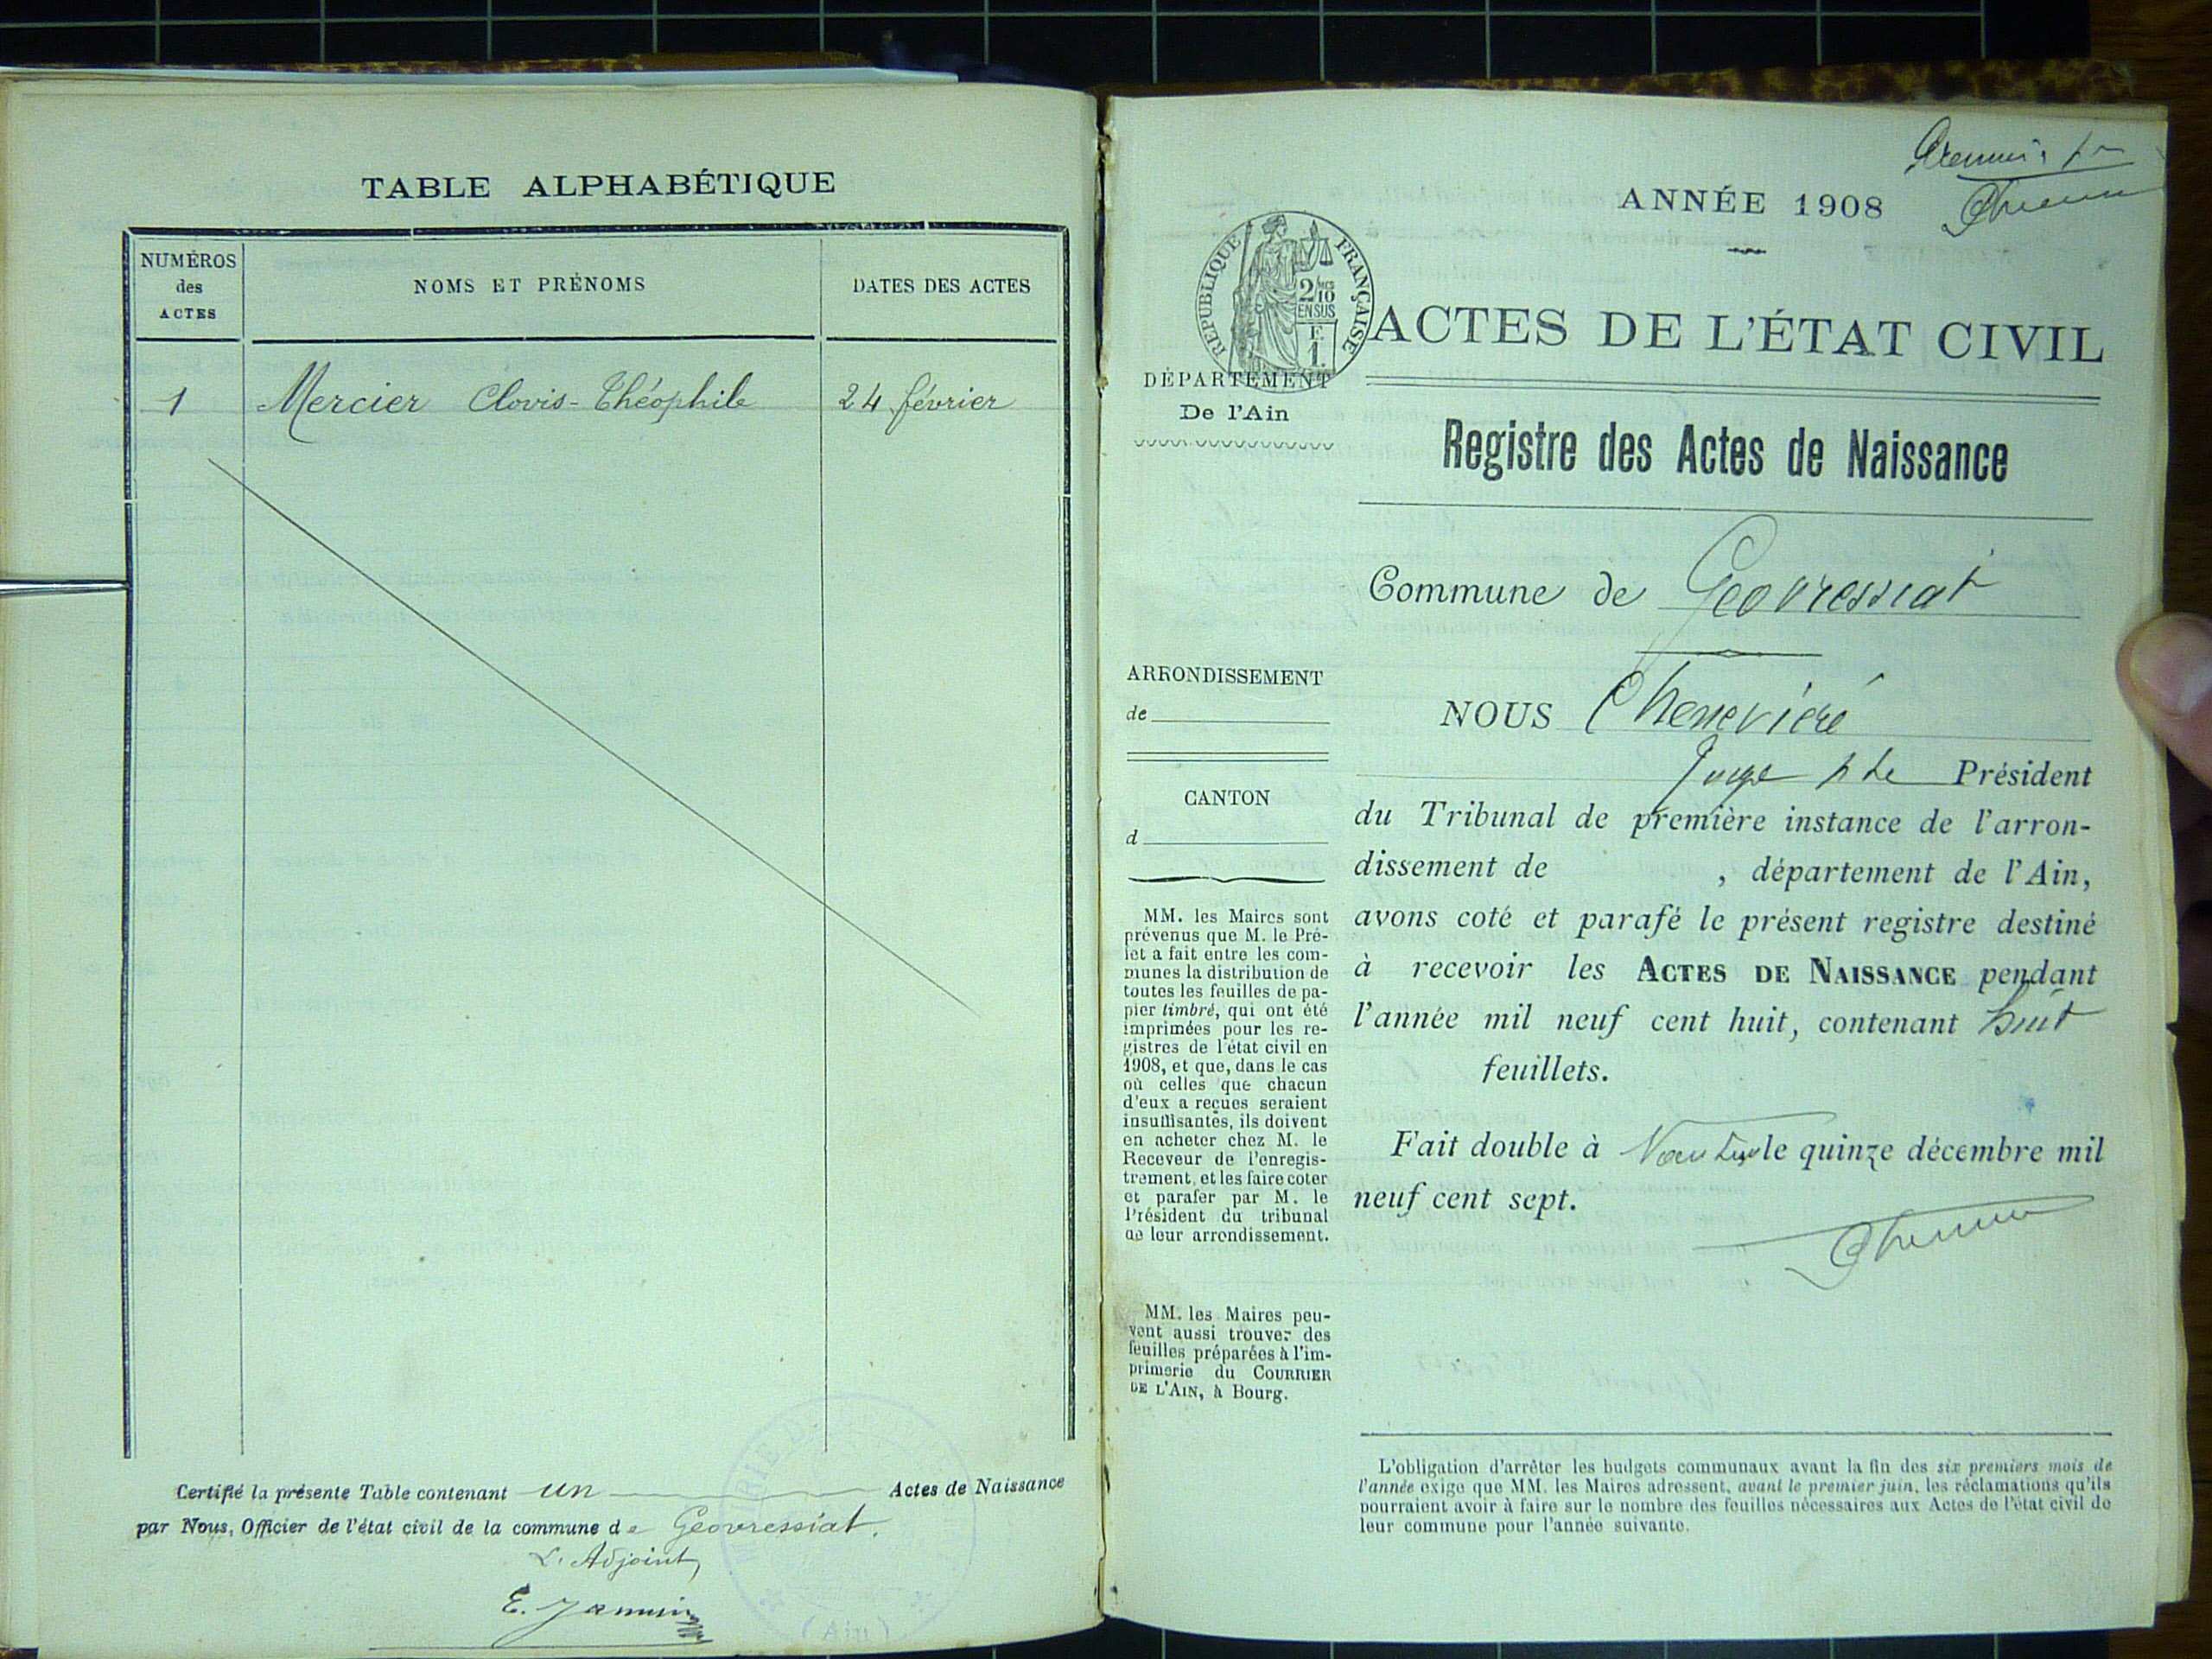 TABLE ALPHABÉTIQUE
NUMÉROS
des
ACTES
NOMS ET PRÉNOMS
DATES DES ACTES
1 Mercier Clovis-Théophile 24 février
Certifié la présente Table contenant un Actes de Naissance
par Nous, Officier de l'état civil de la commune de Geovressiat.
L'Adjoint,
MAIRIE DE
(Ain)
ANNÉE 1908
RÉPUBLIQUE FRANÇAISE
2/10
EN SUS
F.
1.
ACTES DE L'ÉTAT CIVIL
DÉPARTEMENT
De l'Ain
Registre des Actes de Naissance
Commune de Geovressiat
ARRONDISSEMENT
de
CANTON
d
MM. les Maires sont
prévenus que M. le Pré-
fet a fait entre les com-
munes la distribution de
toutes les feuilles de pa-
pier timbré, qui ont été
imprimées pour les re-
gistres de l'état civil en
1908, et que, dans le cas
où celles que chacun
d'eux a reçues seraient
insuffisantes, ils doivent
en acheter chez M. le
Receveur de l'enregis-
trement, et les faire coter
et parafer par M. le
Président du tribunal
de leur arrondissement.
MM. les Maires peu-
vent aussi trouver des
feuilles préparées à l'im-
primerie du COURRIER
DE L'AIN, à Bourg.
NOUS Cheneviéré
Juge Président
du Tribunal de première instance de l'arron-
dissement de , département de l'Ain,
avons coté et parafé le présent registre destiné
à recevoir les ACTES DE NAISSANCE pendant
l'année mil neuf cent huit, contenant huit
feuillets.
Fait double à Nantua le quinze décembre mil
neuf cent sept.
L'obligation d'arrêter les budgets communaux avant la fin des six premiers mois de
l'année exige que MM. les Maires adressent, avant le premier juin, les réclamations qu'ils
pourraient avoir à faire sur le nombre des feuilles nécessaires aux Actes de l'état civil de
leur commune pour l'année suivante.